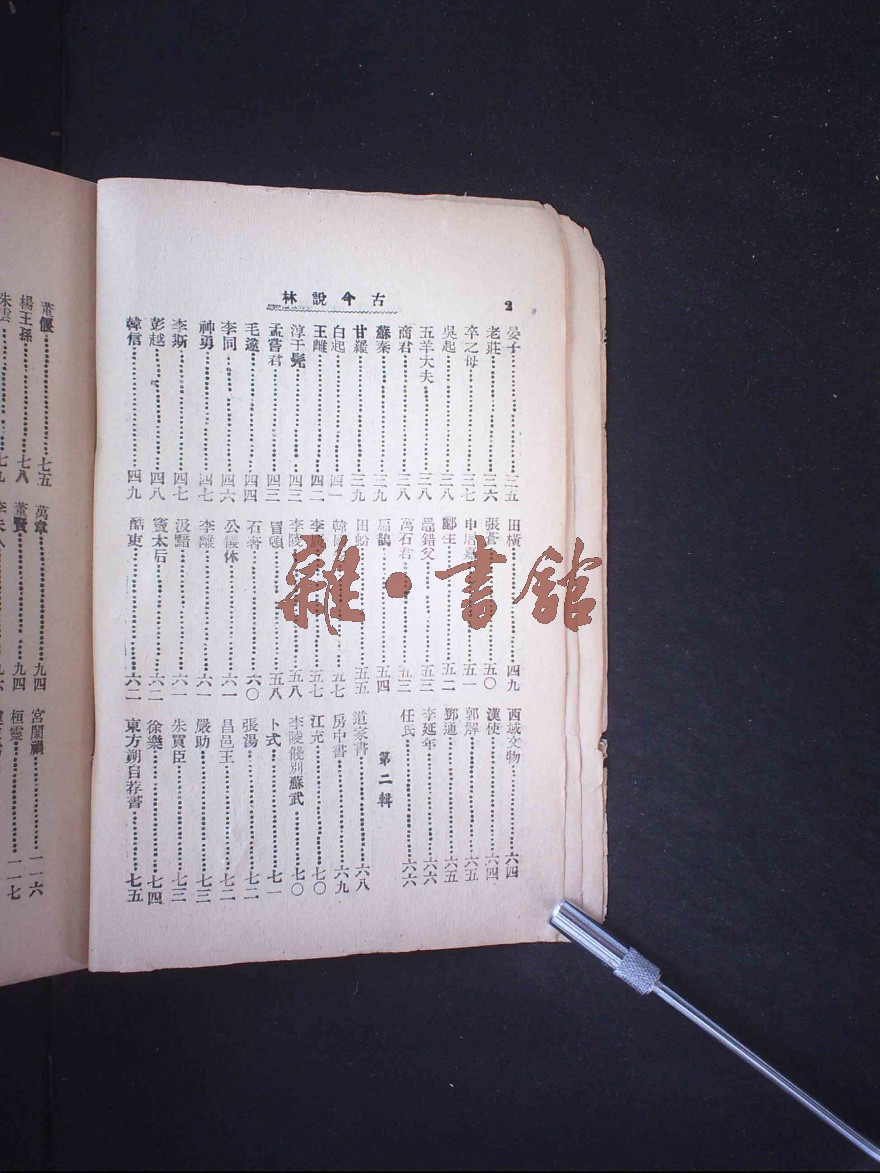 2
古今說林
晏子……三五
老莊……三六
卒之母……三七
吳起……三八
五羊大夫……三八
商君……三八
蘇秦……三九
甘羅……三九
白起……四一
王雎……四二
淳于髡……四三
孟嘗君……四三
毛遂……四四
李同……四六
神勇……四七
李斯……四七
彭越……四八
韓信……四九
田橫……四九
張蒼……五〇
申屠嘉……五一
酈生……五二
鼂錯父……五三
萬石君……五三
扁鵲……五四
田蚡……五五
韓……五七
李廣……五七
李陵……五八
冒頓……五八
石奢……六〇
公儀休……六一
李離……六一
汲黯……六一
竇太后……六二
酷吏……六二
西域文物……六四
漢使……六四
郭解……六五
鄧通……六五
李延年……六六
任氏……六六
第二輯
道家書……六八
房中書……六九
江充……七〇
李陵餞別蘇武……七〇
卜式……七一
張湯……七二
昌邑王……七二
嚴助……七三
朱買臣……七三
徐樂……七四
東方朔自荐書……七五
董偃……七五
楊王孫……七八
朱雲……七九
萬章……九四
董賢……九四
九六
宮闈禍……一一六
桓靈……一一七
雜·書館